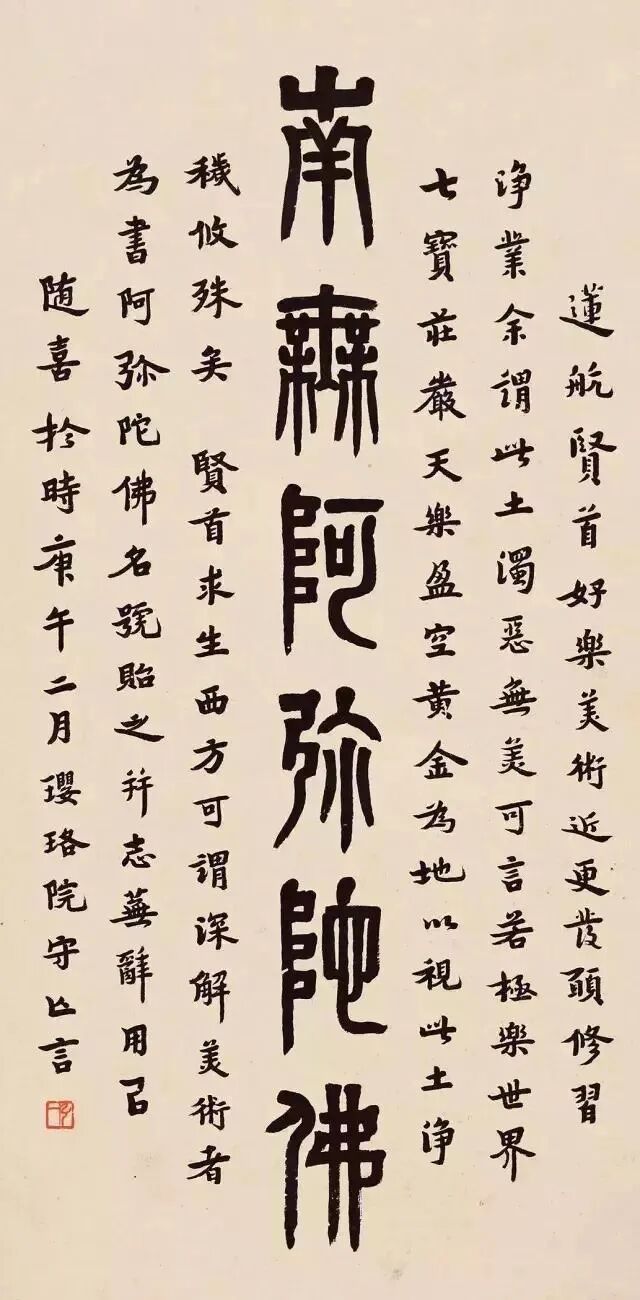 蓮航賢首好樂美術近更發願修習
浄業余謂此土濁惡無美可言若極樂世界
七寶莊嚴天樂盈空黄金為地以視此土浄
南無阿弥陀佛
穢攸殊矣 賢首求生西方可謂深解美術者
為書阿弥陀佛名號貽之并志蕪辭用㠯
随喜於時庚午二月瓔珞院守亡言